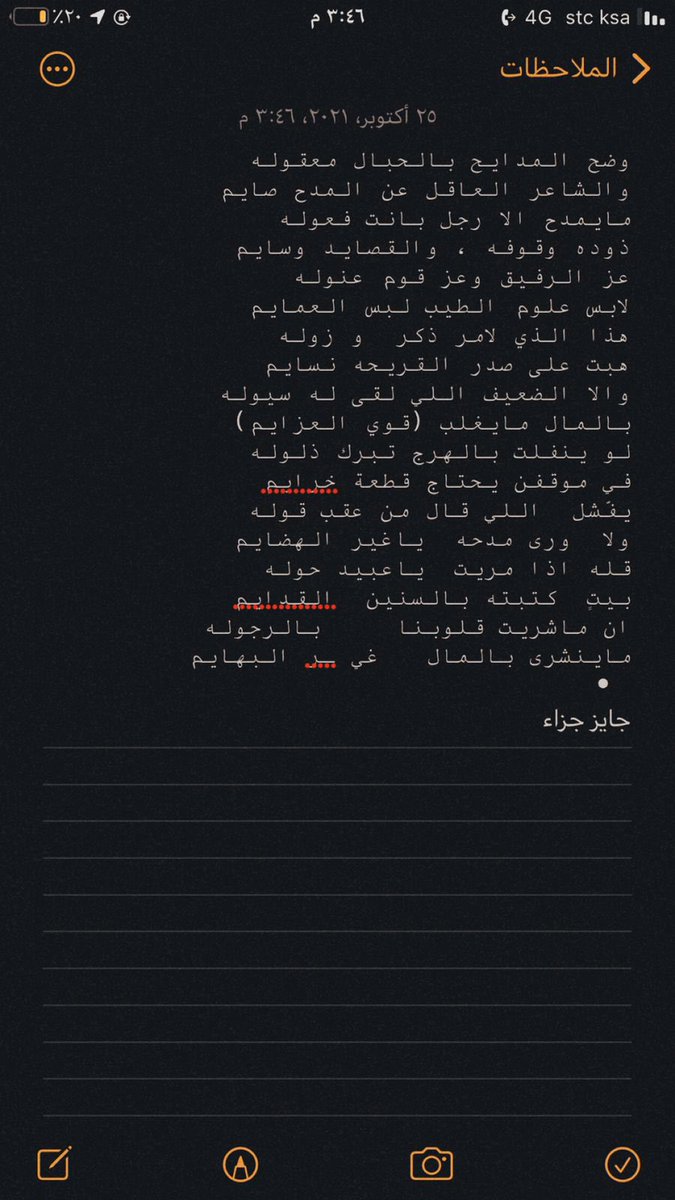 ٪٢٠ ٣:٤٦ م 4G stc ksa
الملاحظات
٢٥ أكتوبر، ٢٠٢١، ٣:٤٦ م
وضح المدايح بالحبال معقوله
والشاعر العاقل عن المدح صايم
مايمدح الا رجل بانت فعوله
ذوده وقوفه ، والقصايد وسايم
عز الرفيق وعز قوم عنوله
لابس علوم الطيب لبس العمايم
هذا الذي لامر ذكر و زوله
هبت على صدر القريحه نسايم
والا الضعيف اللي لقى له سيوله
بالمال مايغلب (قوي العزايم)
لو ينفلت بالهرج تبرك ذلوله
في موقفن يحتاج قطعة خرايم
يفّشل اللي قال من عقب قوله
ولا ورى مدحه ياغير الهضايم
قله اذا مريت ياعبيد حوله
بيتٍ كتبته بالسنين القدايم
ان ماشريت قلوبنا بالرجوله
ماينشرى بالمال غي ـر البهايم
•
جايز جزاء